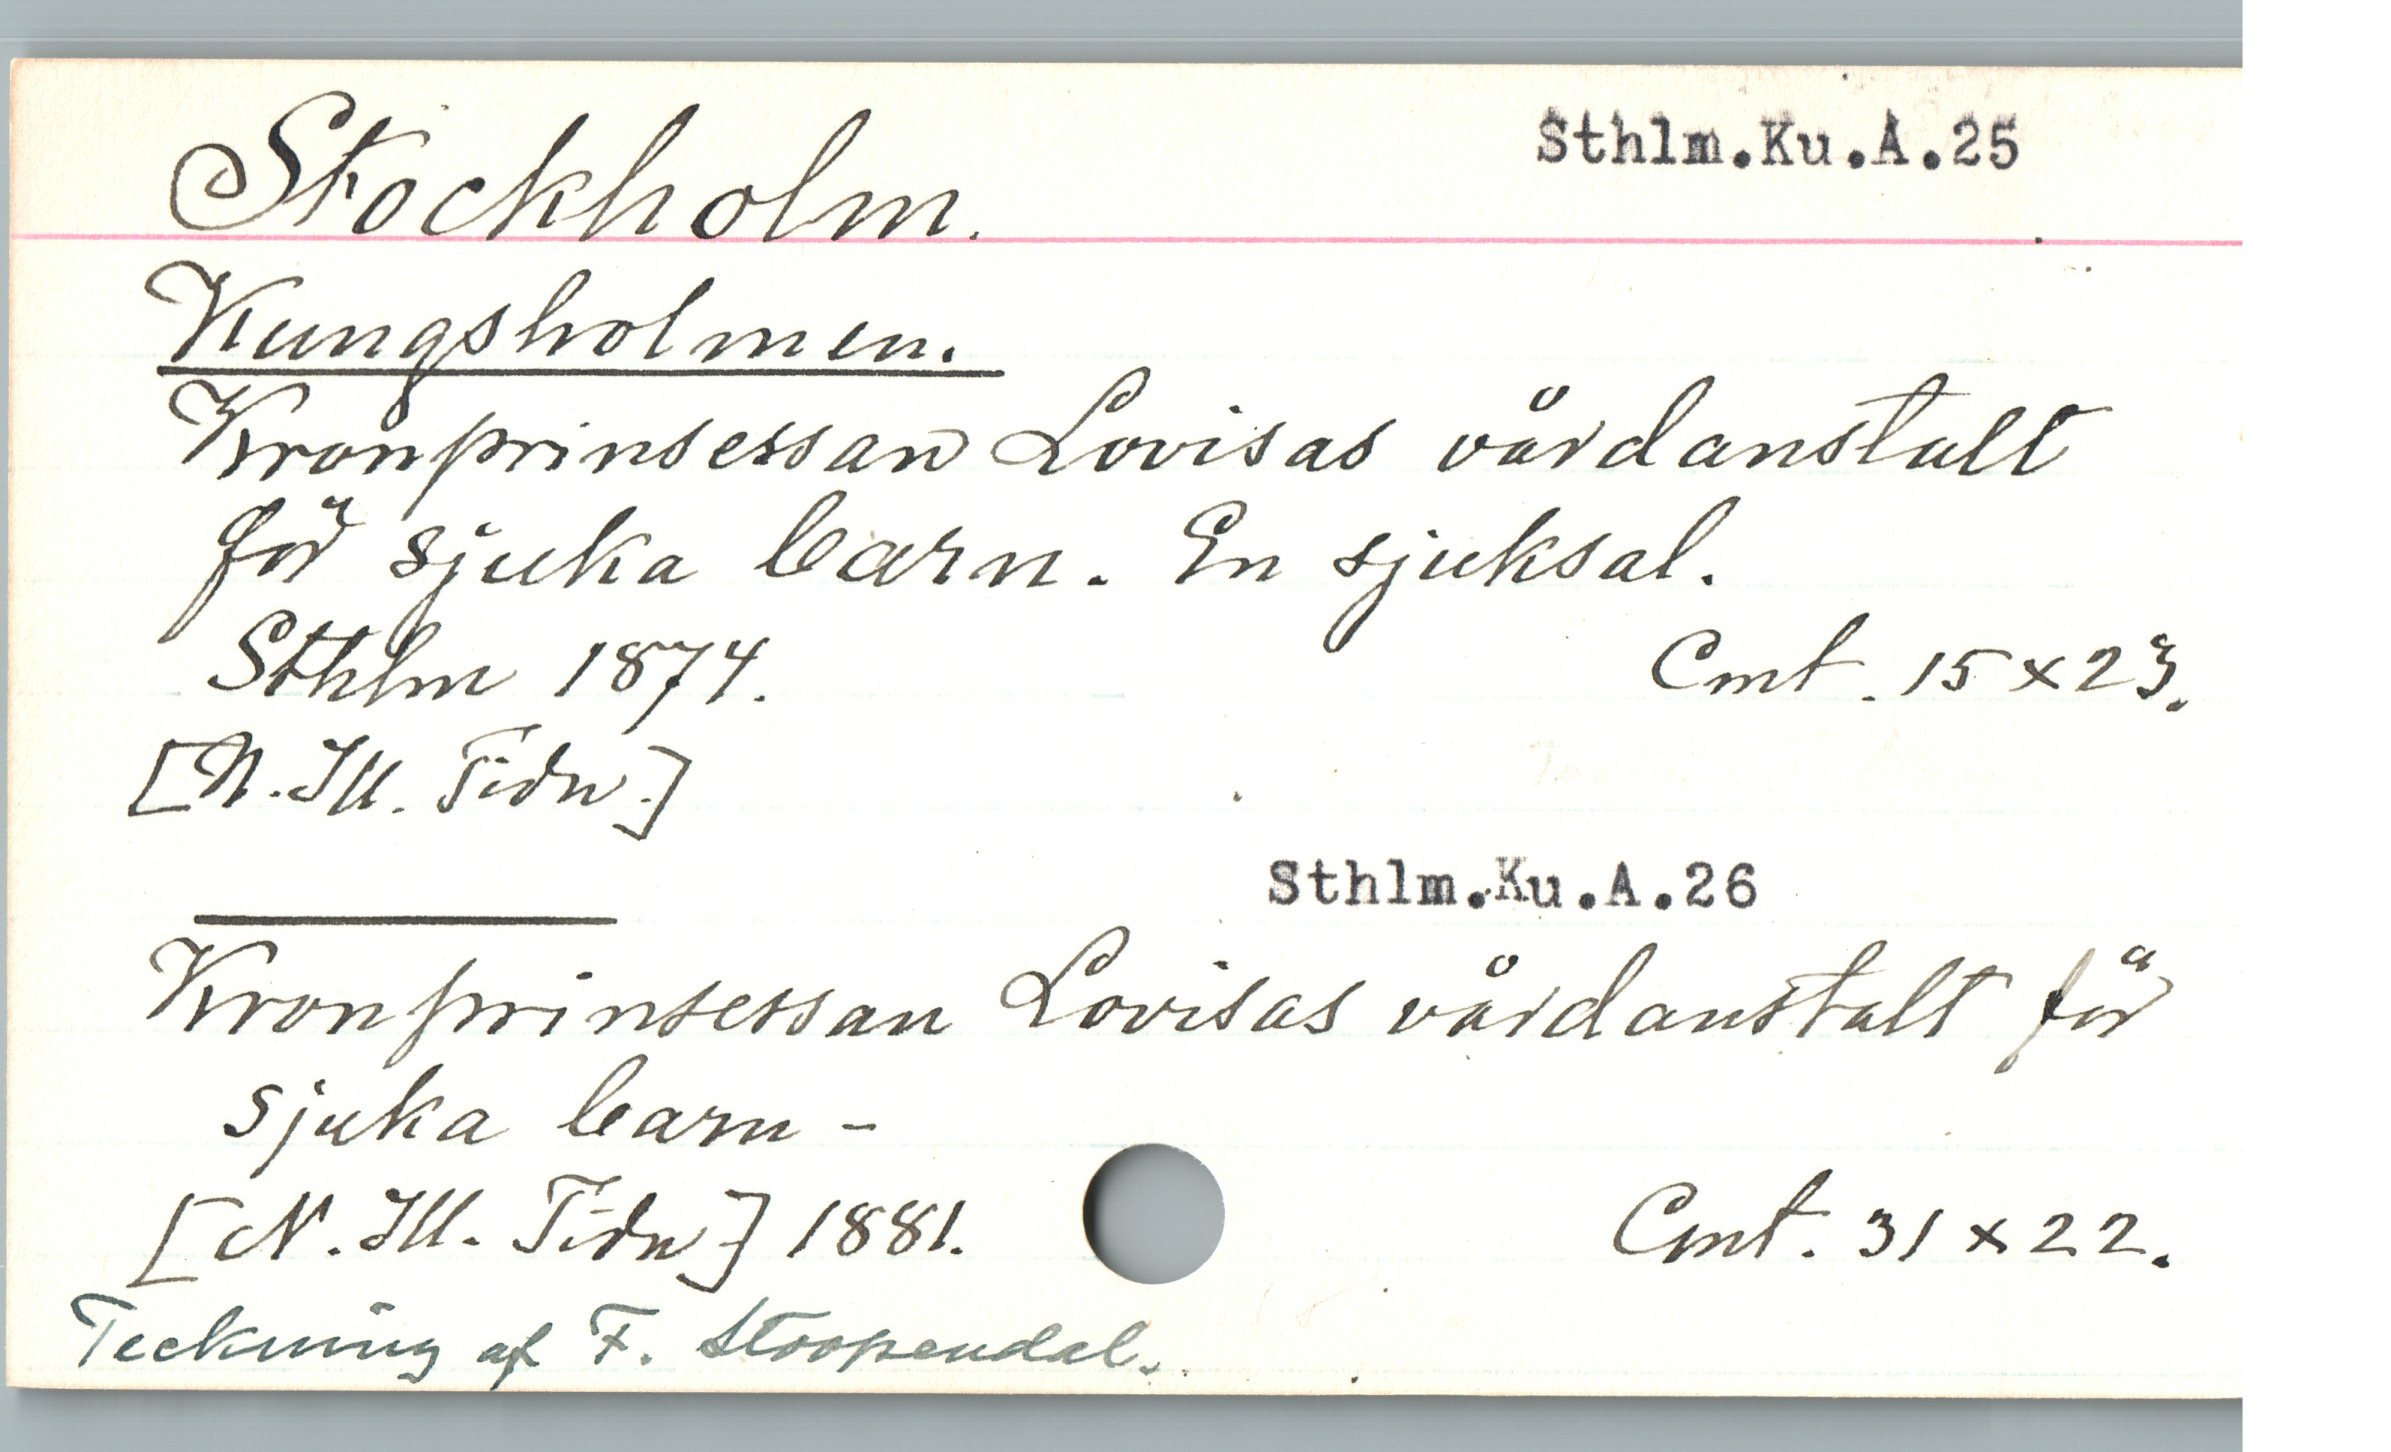 Stockholm.
Sthlm.Ku.A.25
Kungsholmen.
Kronprinsessan Lovisas vårdanstalt
för sjuka barn. En sjuksal.
Sthlm 1874.
Cmt. 15 x 23.
[N. Ill. Tidn.]
Sthlm.Ku.A.26
Kronprinsessan Lovisas vårdanstalt för
sjuka barn -
[N. Ill. Tidn] 1881.
Cmt. 31 x 22.
Teckning af F. Stoopendal.